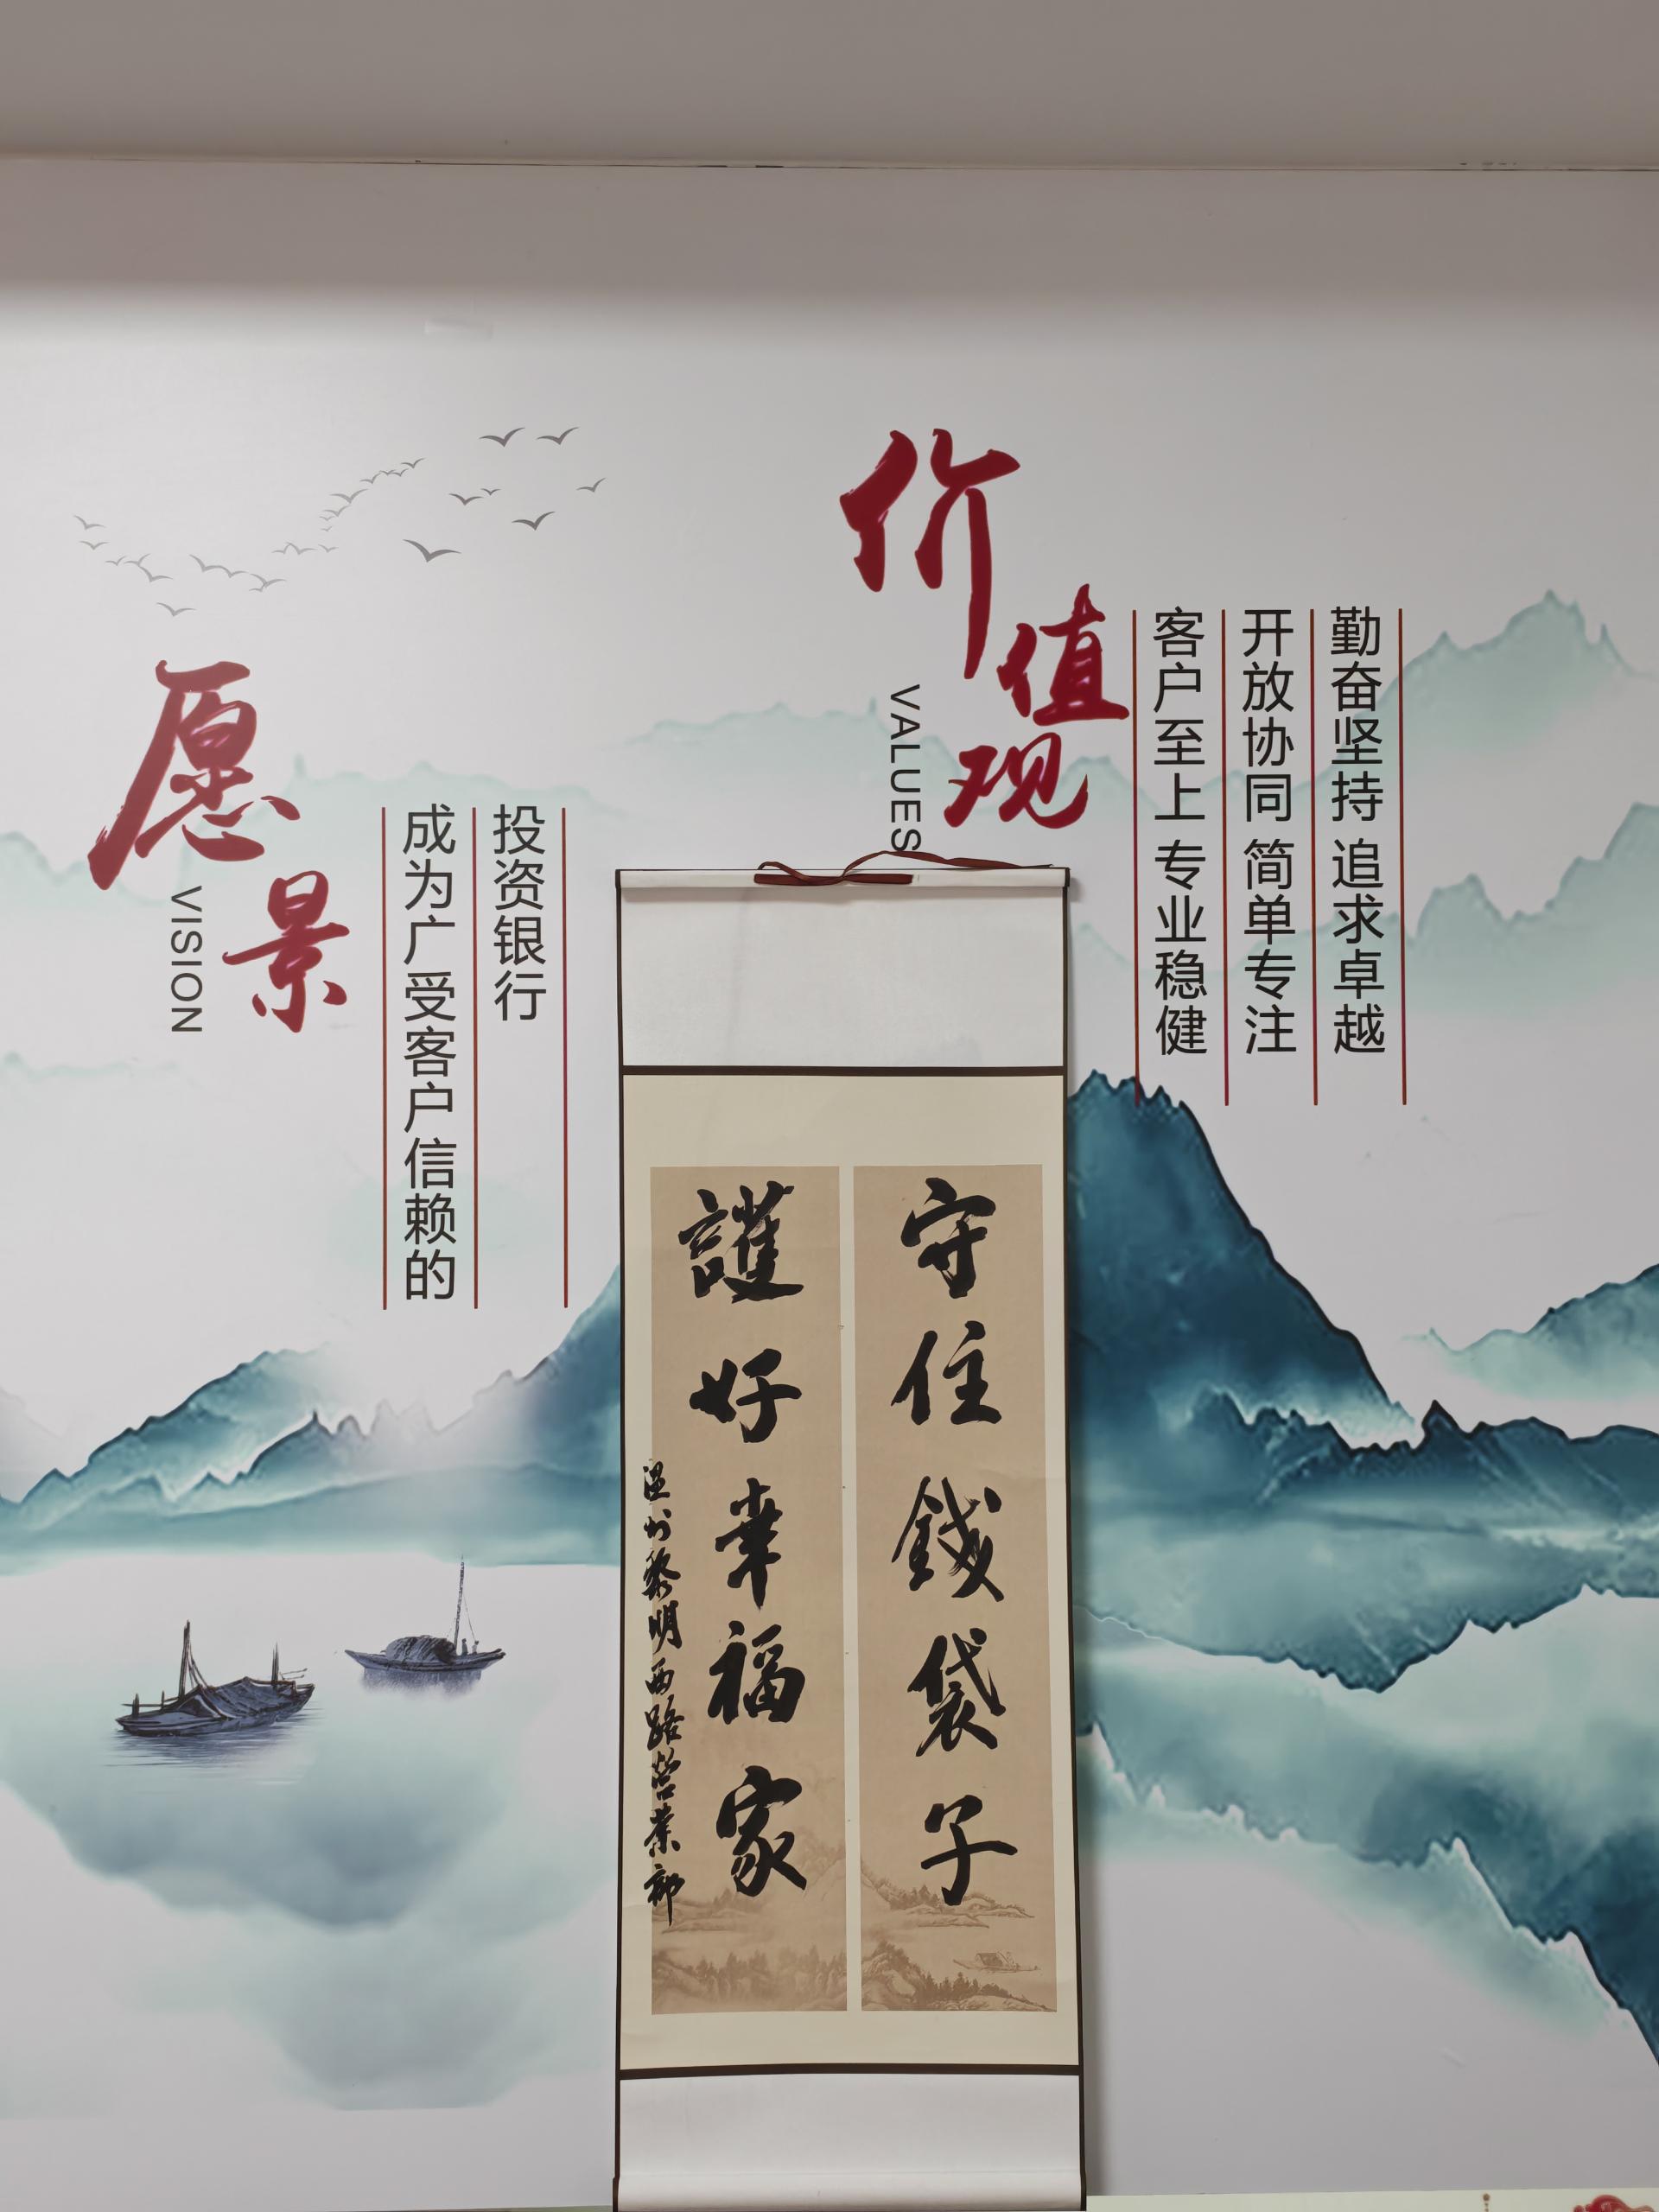 愿景
VISION
成为广受客户信赖的
投资银行
价值观
VALUES
客户至上 专业稳健
开放协同 简单专注
勤奋坚持 追求卓越
守住錢袋子
護好幸福家
温州黎明西路营業部